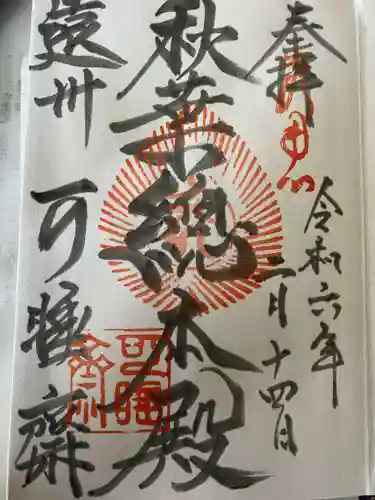 奉拝
令和六年
二月十四日
秋葉総本殿
遠州
可睡齋